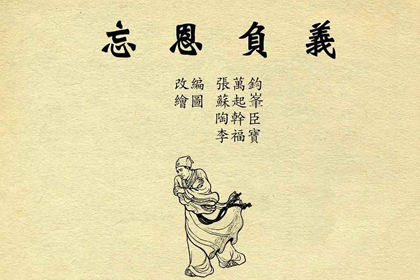 忘恩負義
改編 張萬鈞
繪圖 蘇起峯
陶幹臣
李福寶